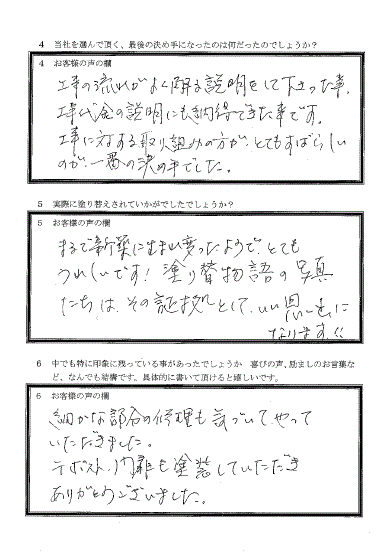 4 当社を選んで頂く、最後の決め手になったのは何だったのでしょうか？
4 お客様の声の欄
工事の流れがよく解る説明をして下さった事、
工事代金の説明にも納得できた事です。
工事に対する取り組みの方が、とてもすばらしい
のが、一番の決め手でした。
5 実際に塗り替えされていかがでしたでしょうか？
5 お客様の声の欄
まるで新築に生まれ変ったようで、とても
うれしいです！塗り替物語の写真
たちは、その証拠として、いい思い出に
なります！！
6 中でも特に印象に残っている事があったでしょうか 喜びの声、励ましのお言葉な
ど、なんでも結構です。具体的に書いて頂けると嬉しいです。
6 お客様の声の欄
細かな部分の修理も気づいてやって
いただきました。
ポスト、門扉も塗装していただき
ありがとうございました。